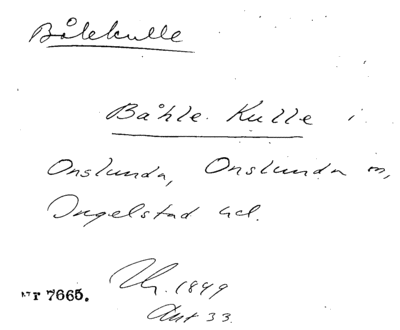 Bålekulle
Båhle Kulle i
Onslunda, Onslunda sn,
Ingelstad hd.
1849
7665.
Ant 33.